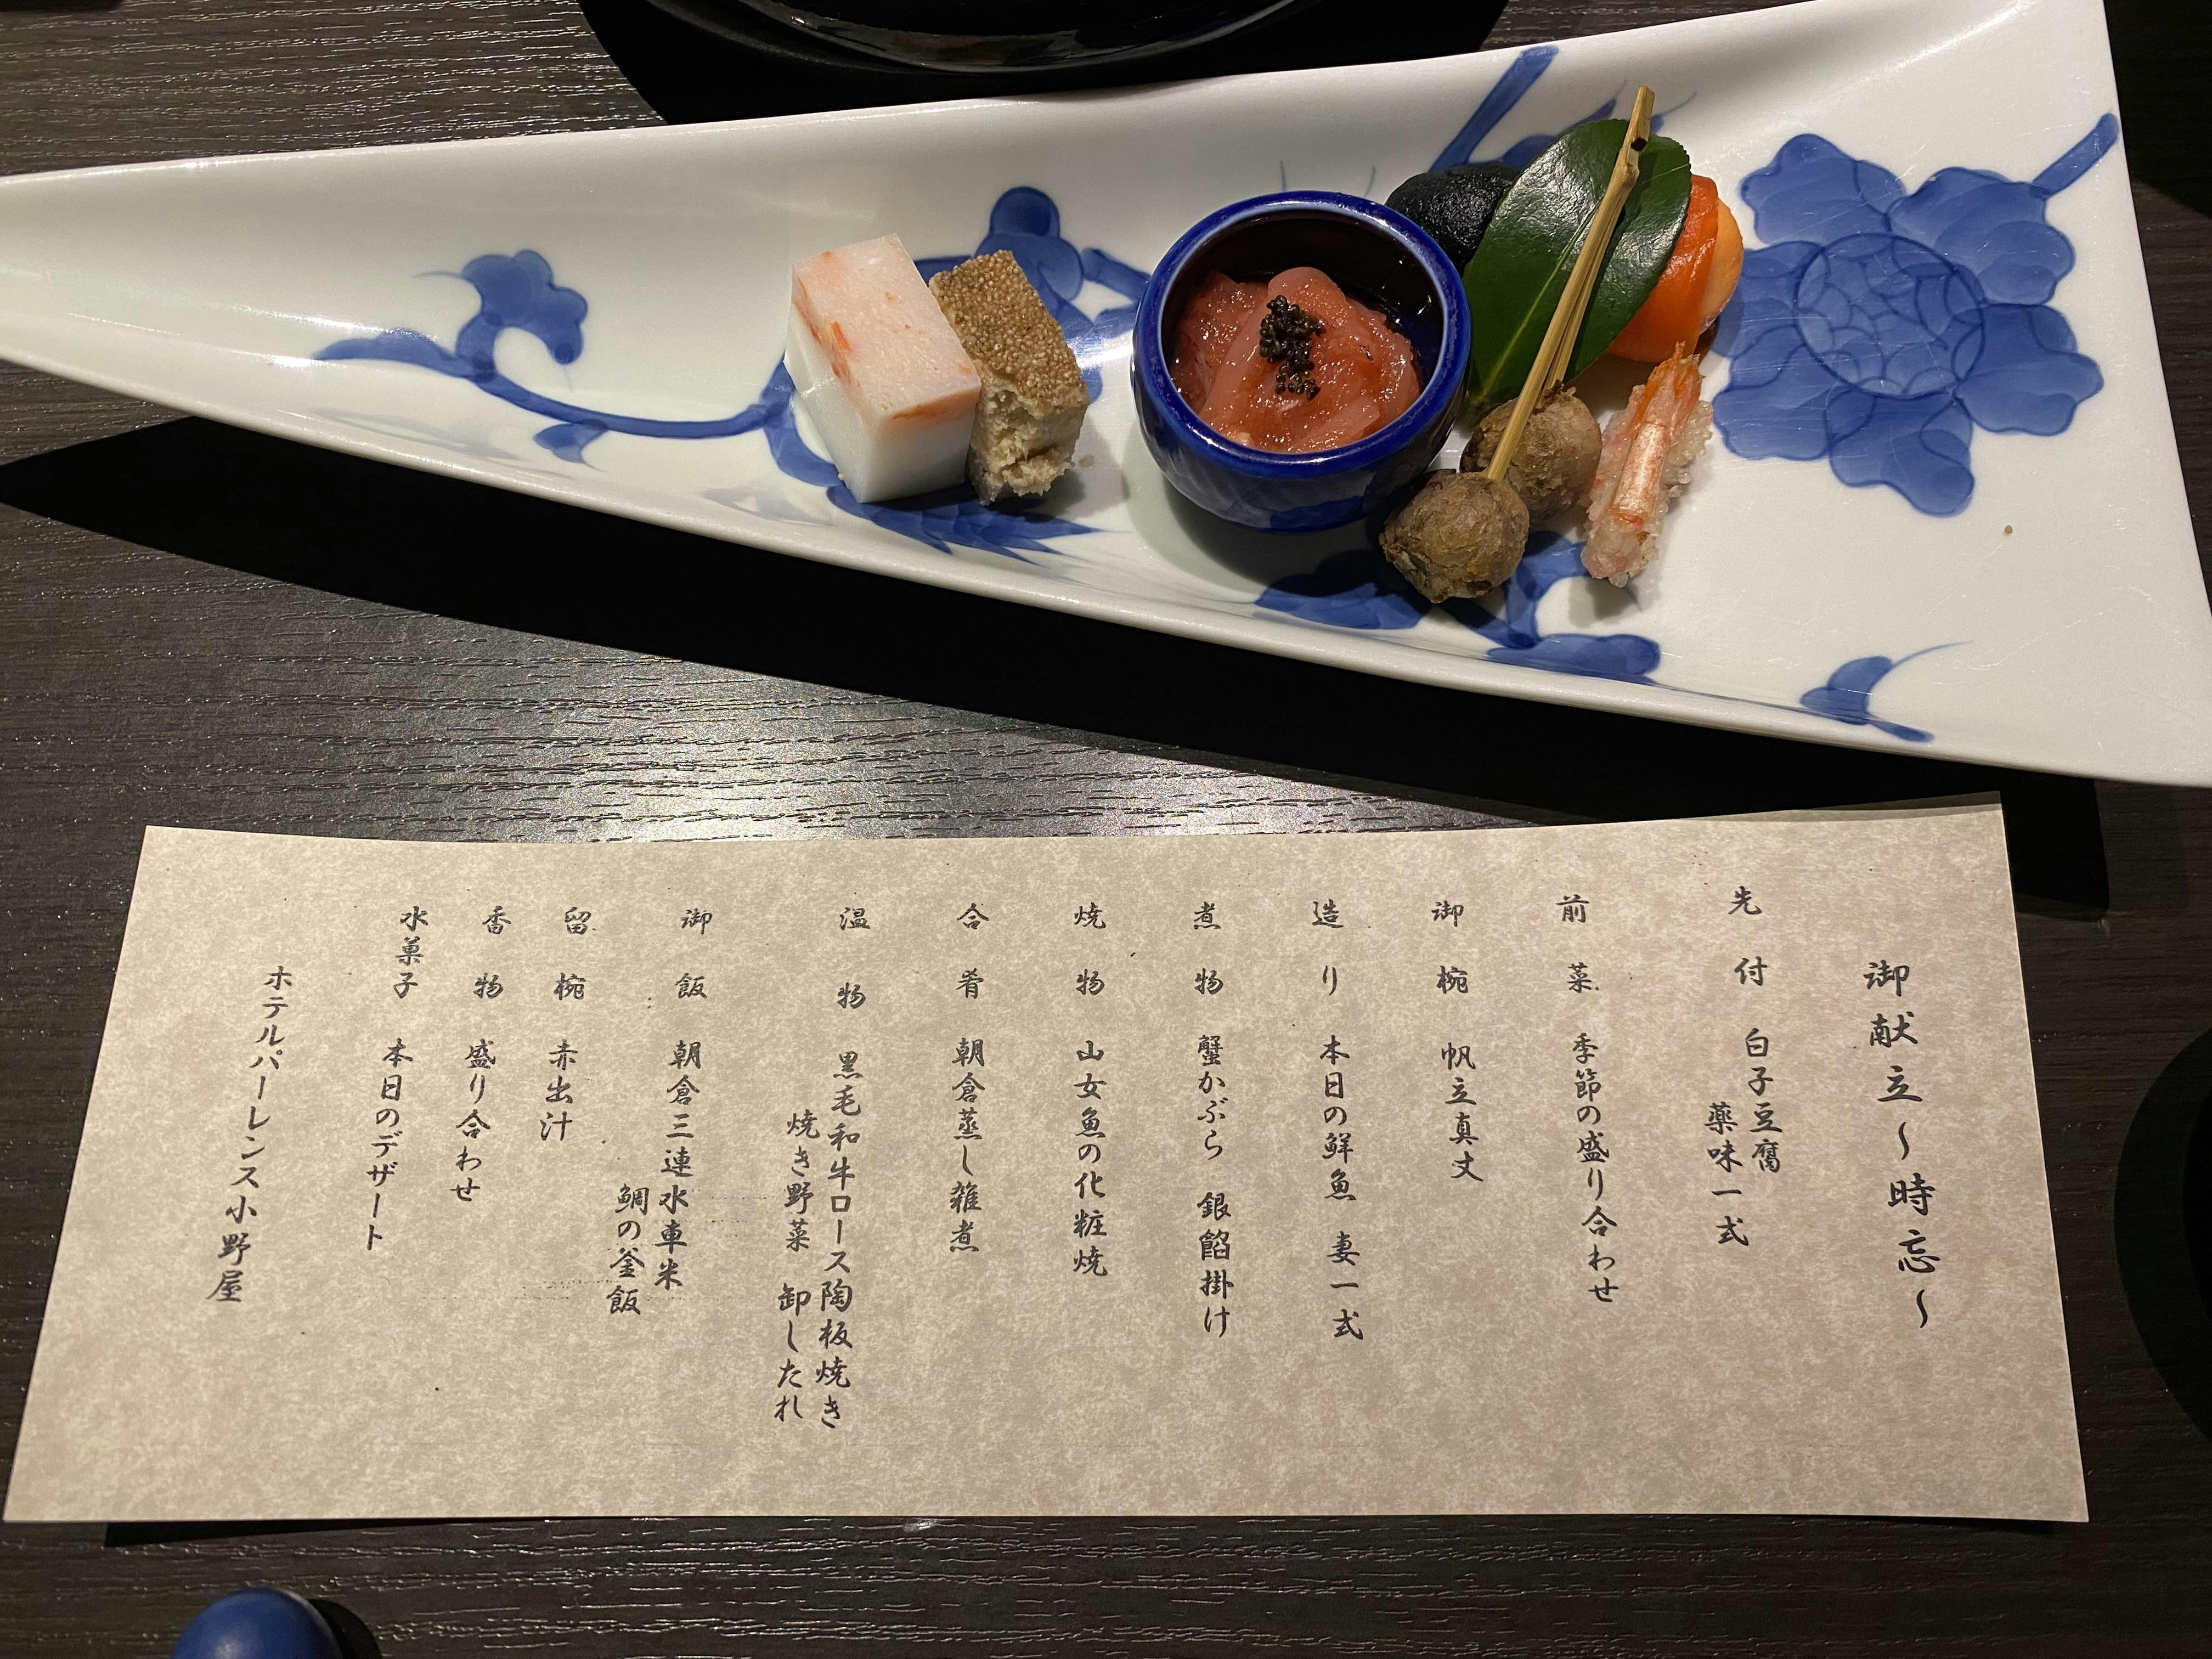 御献立～時忘～
先付 白子豆腐
薬味一式
前菜 季節の盛り合わせ
御椀 帆立真丈
造り 本日の鮮魚 妻一式
煮物 蟹かぶら 銀餡掛け
焼物 山女魚の化粧焼
合肴 朝倉蒸し雑煮
温物 黒毛和牛ロース陶板焼き
焼き野菜 卸したれ
御飯 朝倉三連水車米
鯛の釜飯
留椀 赤出汁
香物 盛り合わせ
水菓子 本日のデザート
ホテルパーレンス小野屋